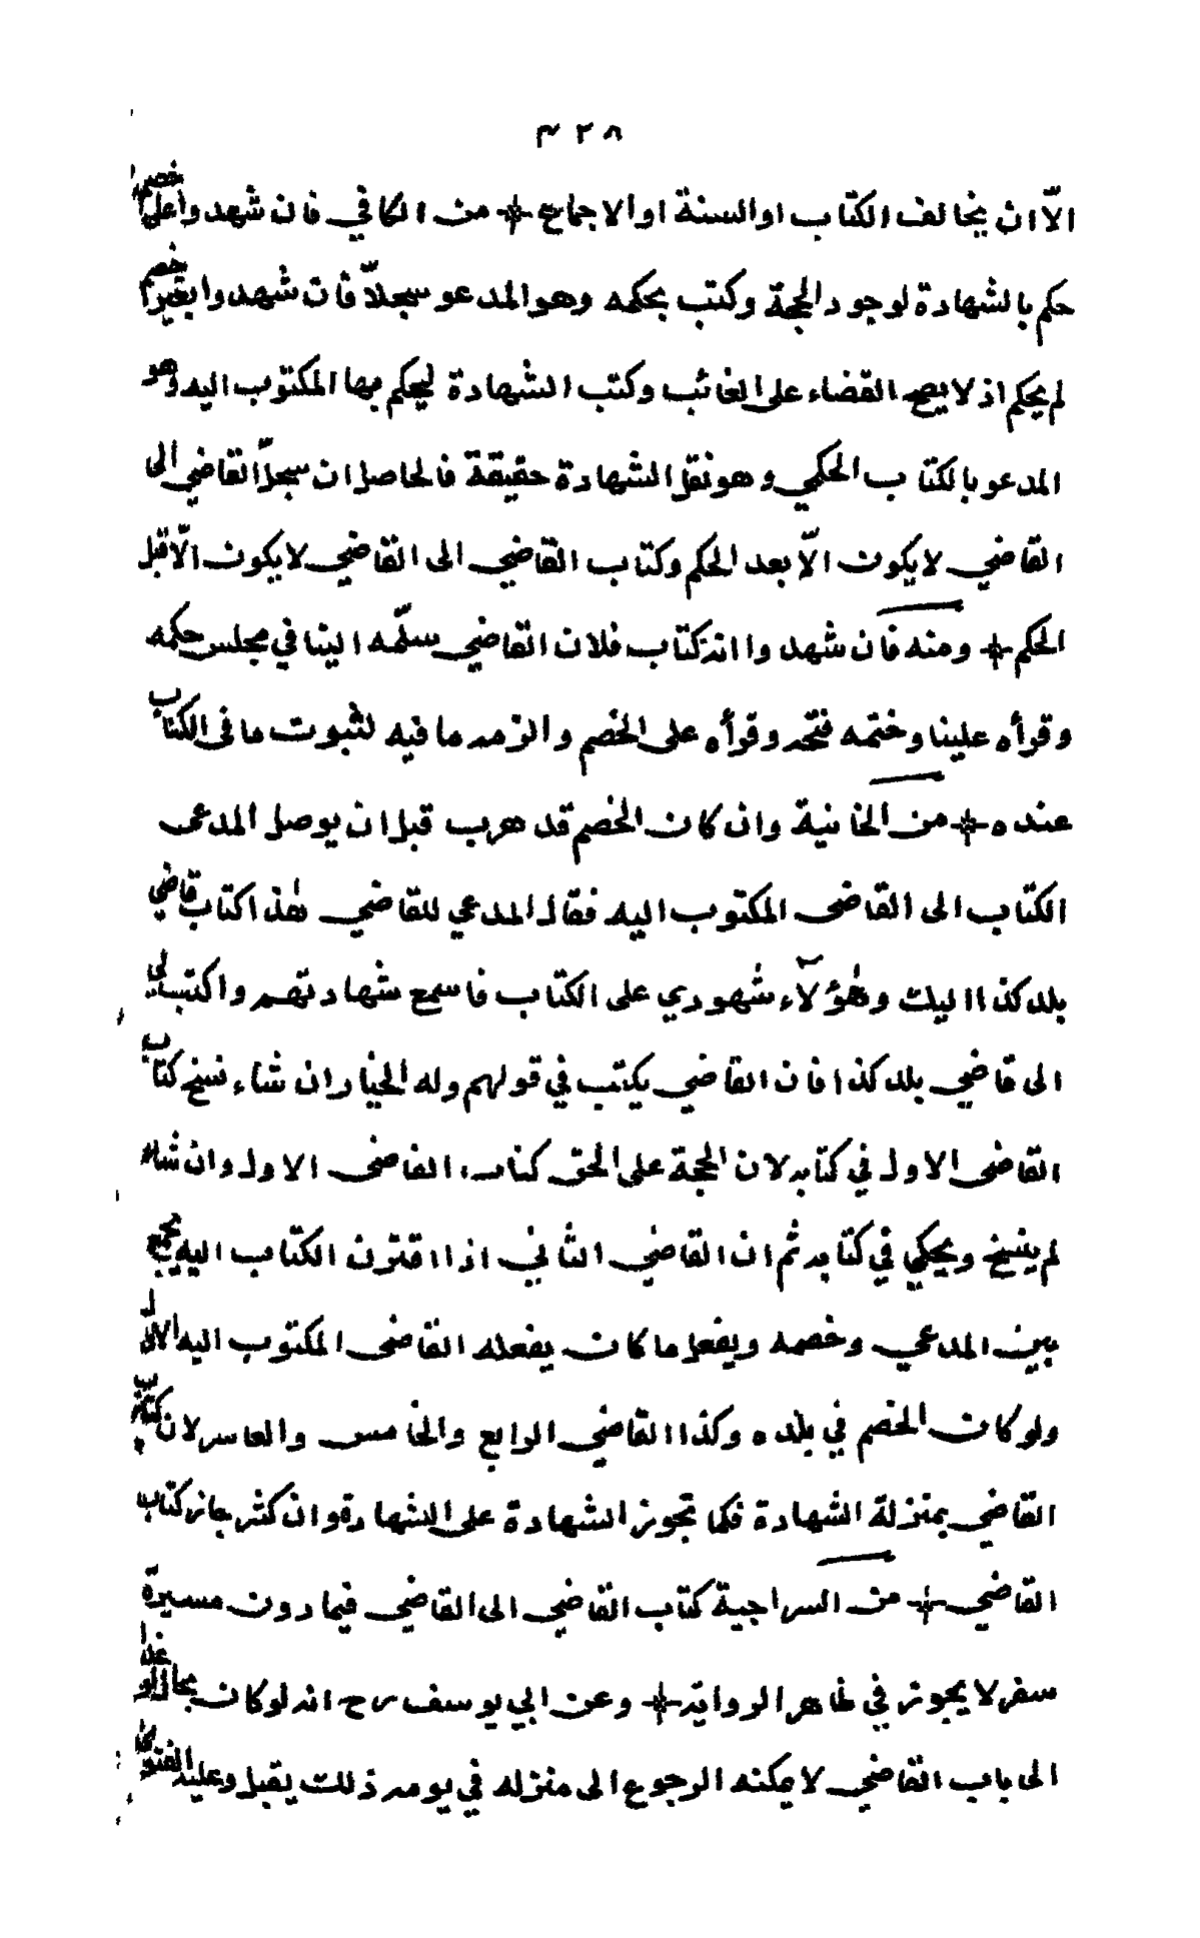 ٣٢٨
الّا ان يخالف الكتاب او السنة او الاجماع * من الكافي فان شهدوا على خصم
حكم بالشهادة لوجود الحجة وكتب بحكمه وهو المدعو سجلّا فان شهدوا بغير خصم
لم يحكم اذ لا يصح القضاء على الغائب وكتب الشهادة ليحكم بها المكتوب اليه وهو
المدعو بالكتاب الحكمي وهو نقل الشهادة حقيقة فالحاصل ان سجلّ القاضي الى
القاضي لا يكون الّا بعد الحكم وكتاب القاضي الى القاضي لا يكون الّا قبل
الحكم * ومنه فان شهدوا انه كتاب فلان القاضي سلّمه الينا في مجلس حكمه
وقرأه علينا وختمه فتحه وقرأه على الخصم والزمه ما فيه لثبوت ما فى الكتاب
عنده * من الخانية وان كان الخصم قد هرب قبل ان يوصل المدعى
الكتاب الى القاضى المكتوب اليه فقال المدعي للقاضي هٰذا كتاب قاضي
بلد كذا اليك وهٰؤلآء شهودي على الكتاب فاسمع شهادتهم واكتب لي
الى قاضي بلد كذا فان القاضي يكتب في قولهم وله الخيار ان شاء نسخ كتاب
القاضى الاول في كتابه لان الحجة على الحق كتاب القاضى الاول وان شاء
لم ينسخ ويحكي في كتابه ثم ان القاضي الثاني اذا اقترن الكتاب اليه يجمع
بين المدعي وخصمه ويفعل ما كان يفعله القاضى المكتوب اليه الاول
ولو كان الخصم في بلده وكذا القاضي الرابع والخامس والعاشر لان كتاب
القاضي بمنزلة الشهادة فكما تجوز الشهادة على الشهادة وان كثر جاز كتاب
القاضي * من السراجية كتاب القاضي الى القاضي فيما دون مسيرة
سفر لا يجوز في ظاهر الرواية * وعن ابي يوسف رح انه لو كان بحال لو غدا
الى باب القاضي لا يمكنه الرجوع الى منزله في يومه ذلك يقبل وعليه الفتوى